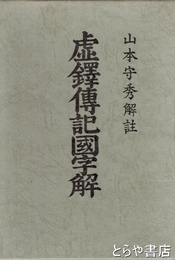 山本守秀解註
虚鐸傳記國字解
とらや書店